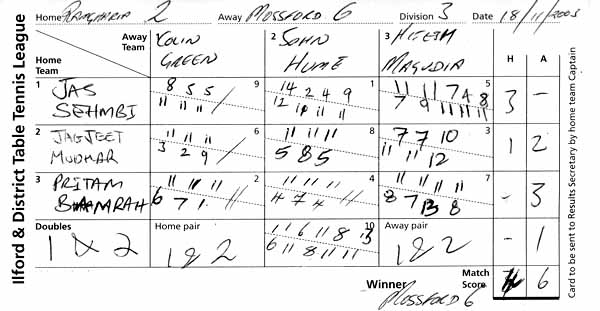 Ilford & District Table Tennis League
Home 2 Away MOSSFORD 6 Division 3 Date 18/11/2003
Away Team COLIN GREEN 2 JOHN HUME 3 HITESH MAGUDIA H A
Home Team
1 JAS SEHMBI 8 5 5 9 14 2 4 9 1 11 9 11 7 4 8 5 3 -
11 11 11 12 11 11 11
2 JAGJEET MUDHAR 11 11 11 6 11 11 11 8 7 7 10 3 1 2
3 2 9 5 8 5 11 11 12
3 PRITAM BAMRAH 11 11 11 2 11 11 11 4 11 11 11 11 7 - 3
6 7 1 4 7 4 8 7 13 8
Doubles Home pair 11 6 11 8 13 10 Away pair
1 & 2 1 & 2 6 11 8 11 11 1 & 2 - 1
Winner MOSSFORD 6 Match Score 6
Card to be sent to Results Secretary by home team Captain